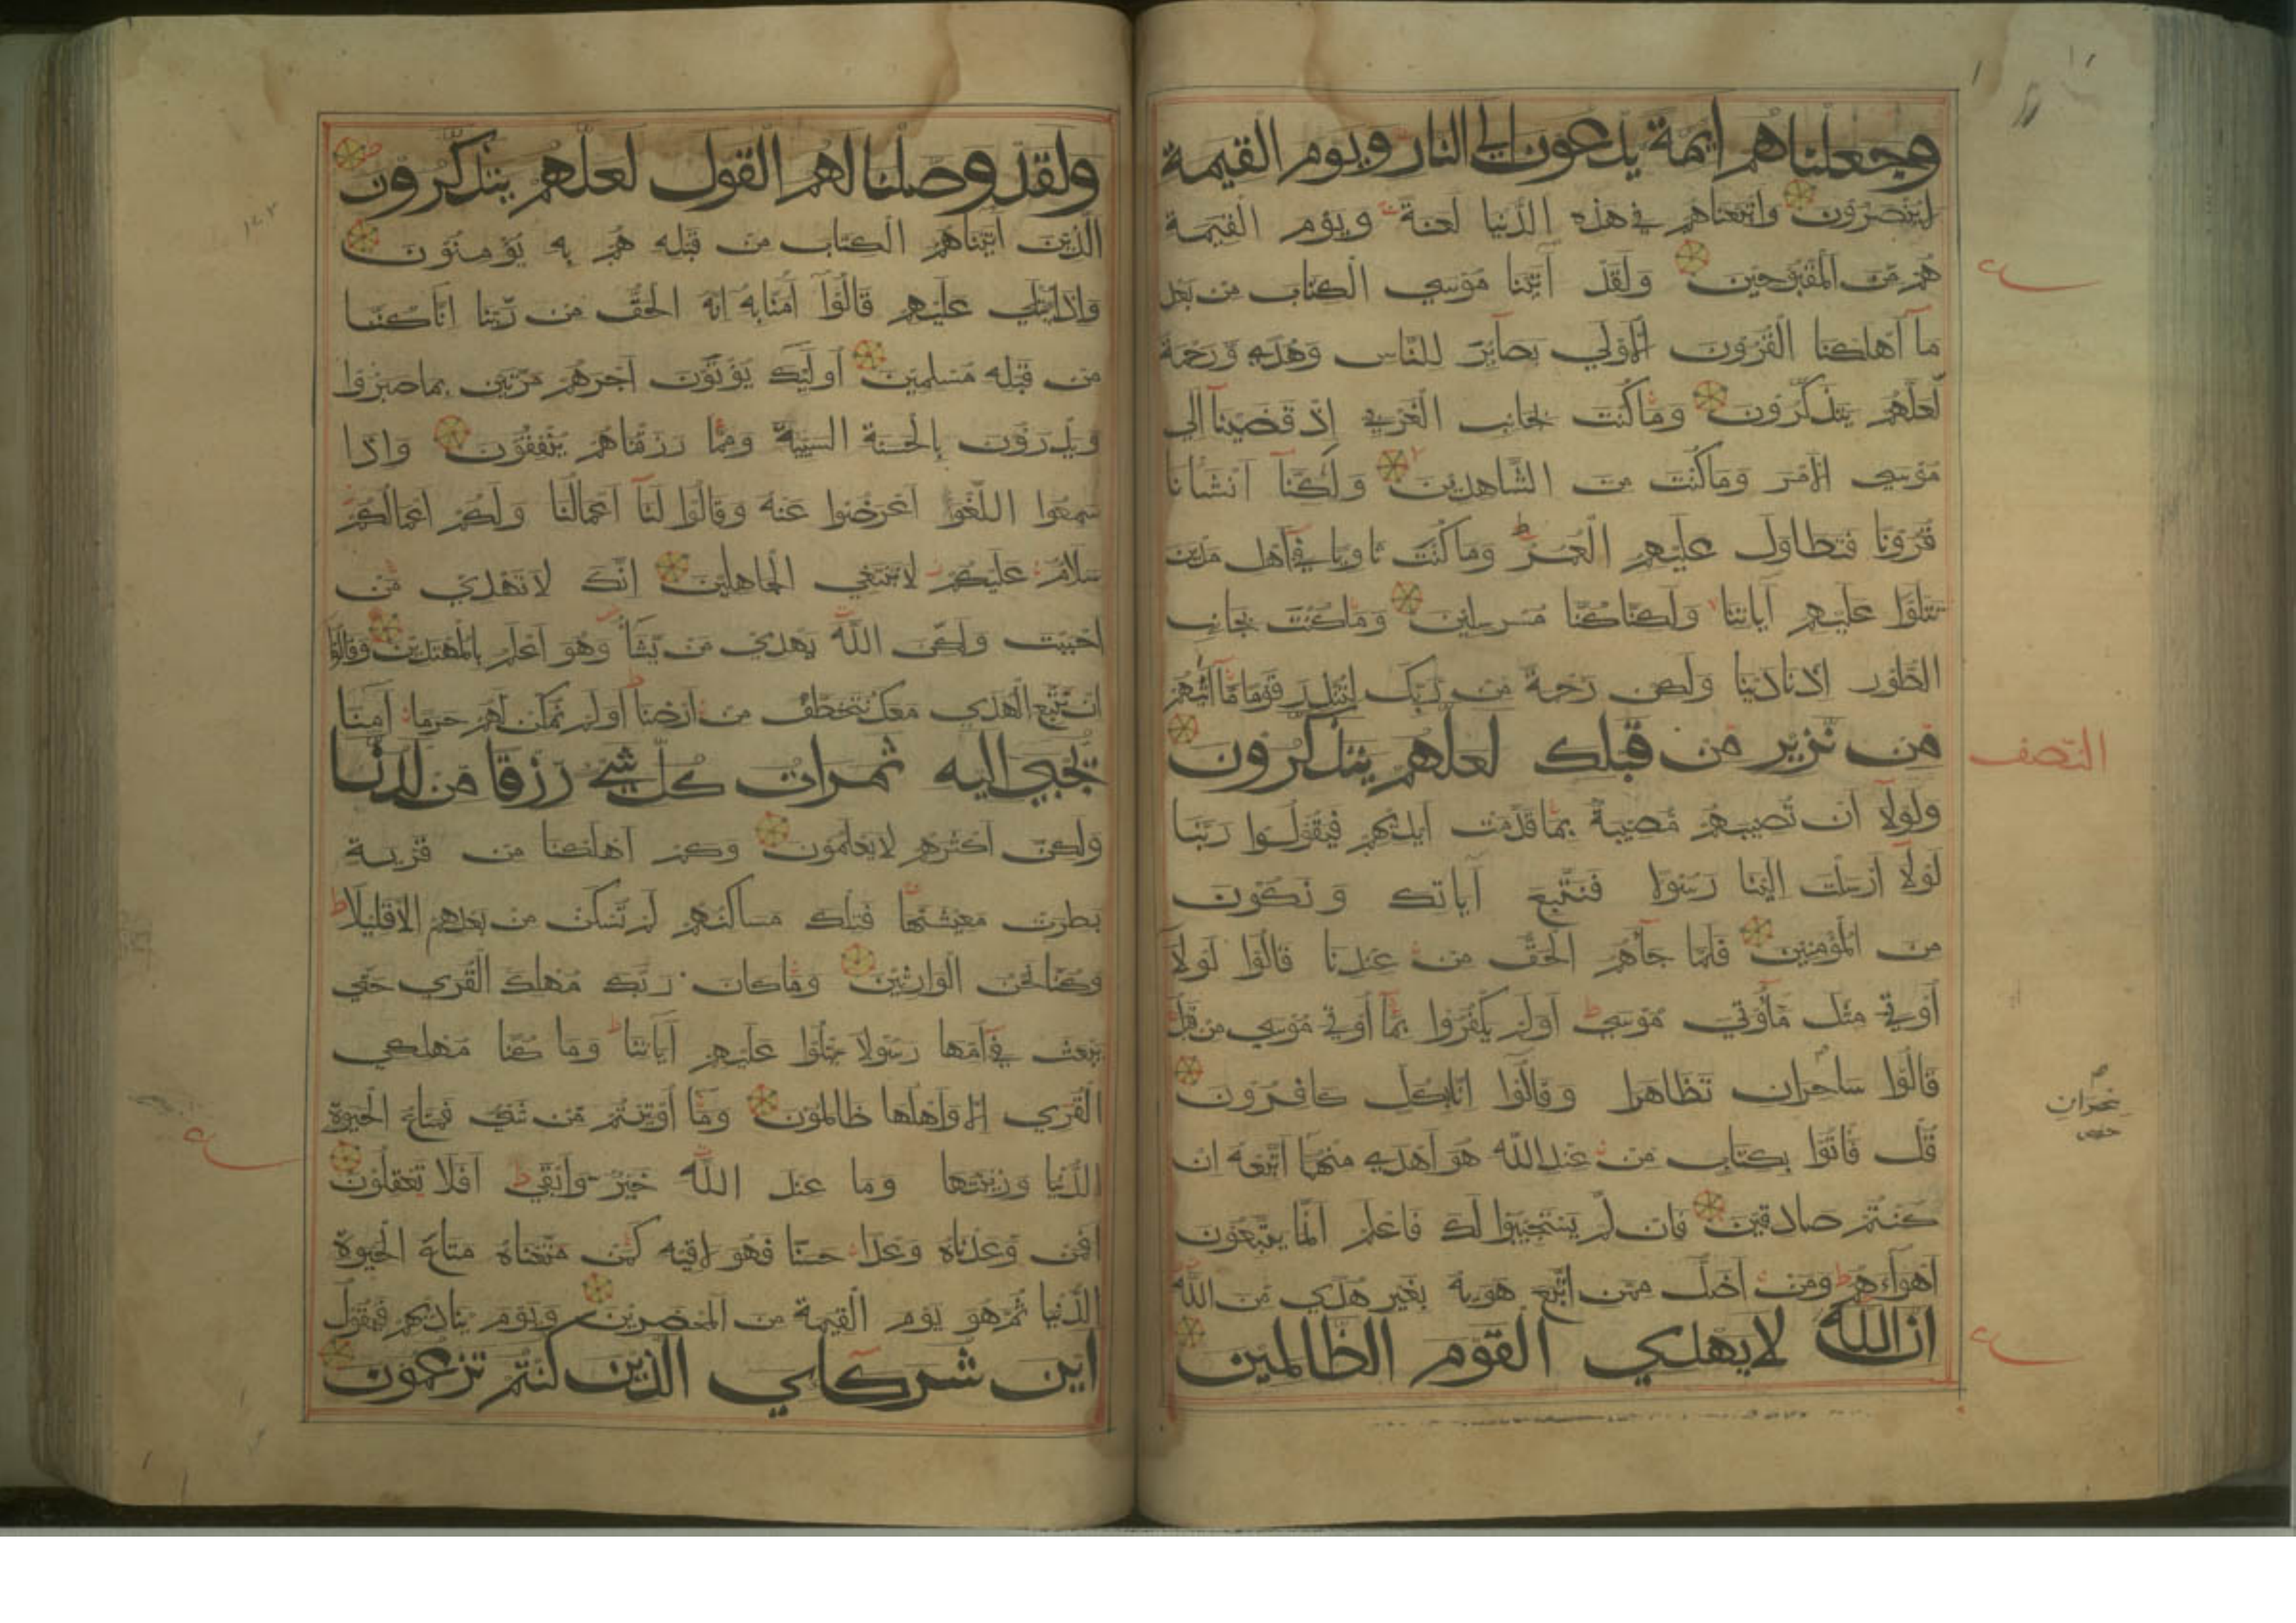 وجعلناهم ايمة يدعون الى النار ويوم القيمة
لا ينصرون واتبعناهم في هذه الدنيا لعنة ويوم القيمة
هم من المقبوحين ولقد آتينا موسى الكتاب من بعد
ما اهلكنا القرون الاولى بصاير للناس وهدى ورحمة
لعلهم يتذكرون وما كنت بجانب الغربي اذ قضينا الى
موسى الامر وما كنت من الشاهدين ولكنا انشانا
قرونا فتطاول عليهم العمر وما كنت ثاويا في اهل مدين
تتلوا عليهم آياتنا ولكنا كنا مرسلين وما كنت بجانب
الطور اذ نادينا ولكن رحمة من ربك لتنذر قوما ما اتيهم
من نذير من قبلك لعلهم يتذكرون
النصف
ولولا ان تصيبهم مصيبة بما قدمت ايديهم فيقولوا ربنا
لولا ارسلت الينا رسولا فنتبع آياتك ونكون
من المؤمنين فلما جآهم الحق من عندنا قالوا لولا
اوتي مثل ما اوتي موسى اولم يكفروا بما اوتي موسى من قبل
قالوا ساحران تظاهرا وقالوا انا بكل كافرون
قل فاتوا بكتاب من عند الله هو اهدى منهما اتبعه ان
كنتم صادقين فان لم يستجيبوا لك فاعلم انما يتبعون
اهوآءهم ومن اضل ممن اتبع هويه بغير هدى من الله
ان الله لا يهدي القوم الظالمين
ولقد وصلنا لهم القول لعلهم يتذكرون
الذين آتيناهم الكتاب من قبله هم به يؤمنون
واذا يتلى عليهم قالوا آمنا به انه الحق من ربنا انا كنا
من قبله مسلمين اوليك يؤتون اجرهم مرتين بما صبروا
ويدرؤن بالحسنة السيية ومما رزقناهم ينفقون واذا
سمعوا اللغوا اعرضوا عنه وقالوا لنا اعمالنا ولكم اعمالكم
سلام عليكم لا نبتغي الجاهلين انك لا تهدي من
احببت ولكن الله يهدي من يشآ وهو اعلم بالمهتدين وقالوا
ان نتبع الهدى معك نتخطف من ارضنا اولم نمكن لهم حرما آمنا
يجبى اليه ثمرات كل شي رزقا من لدنا
ولكن اكثرهم لا يعلمون وكم اهلكنا من قرية
بطرت معيشتها فتلك مساكنهم لم تسكن من بعدهم الا قليلا
وكنا نحن الوارثين وما كان ربك مهلك القرى حتى
يبعث في امها رسولا يتلوا عليهم آياتنا وما كنا مهلكي
القرى الا واهلها ظالمون وما اوتيتم من شي فمتاع الحيوة
الدنيا وزينتها وما عند الله خير وابقى افلا تعقلون
افمن وعدناه وعدا حسنا فهو لاقيه كمن متعناه متاع الحيوة
الدنيا ثم هو يوم القيمة من المحضرين ويوم يناديهم فيقول
اين شركاي الذين كنتم تزعمون